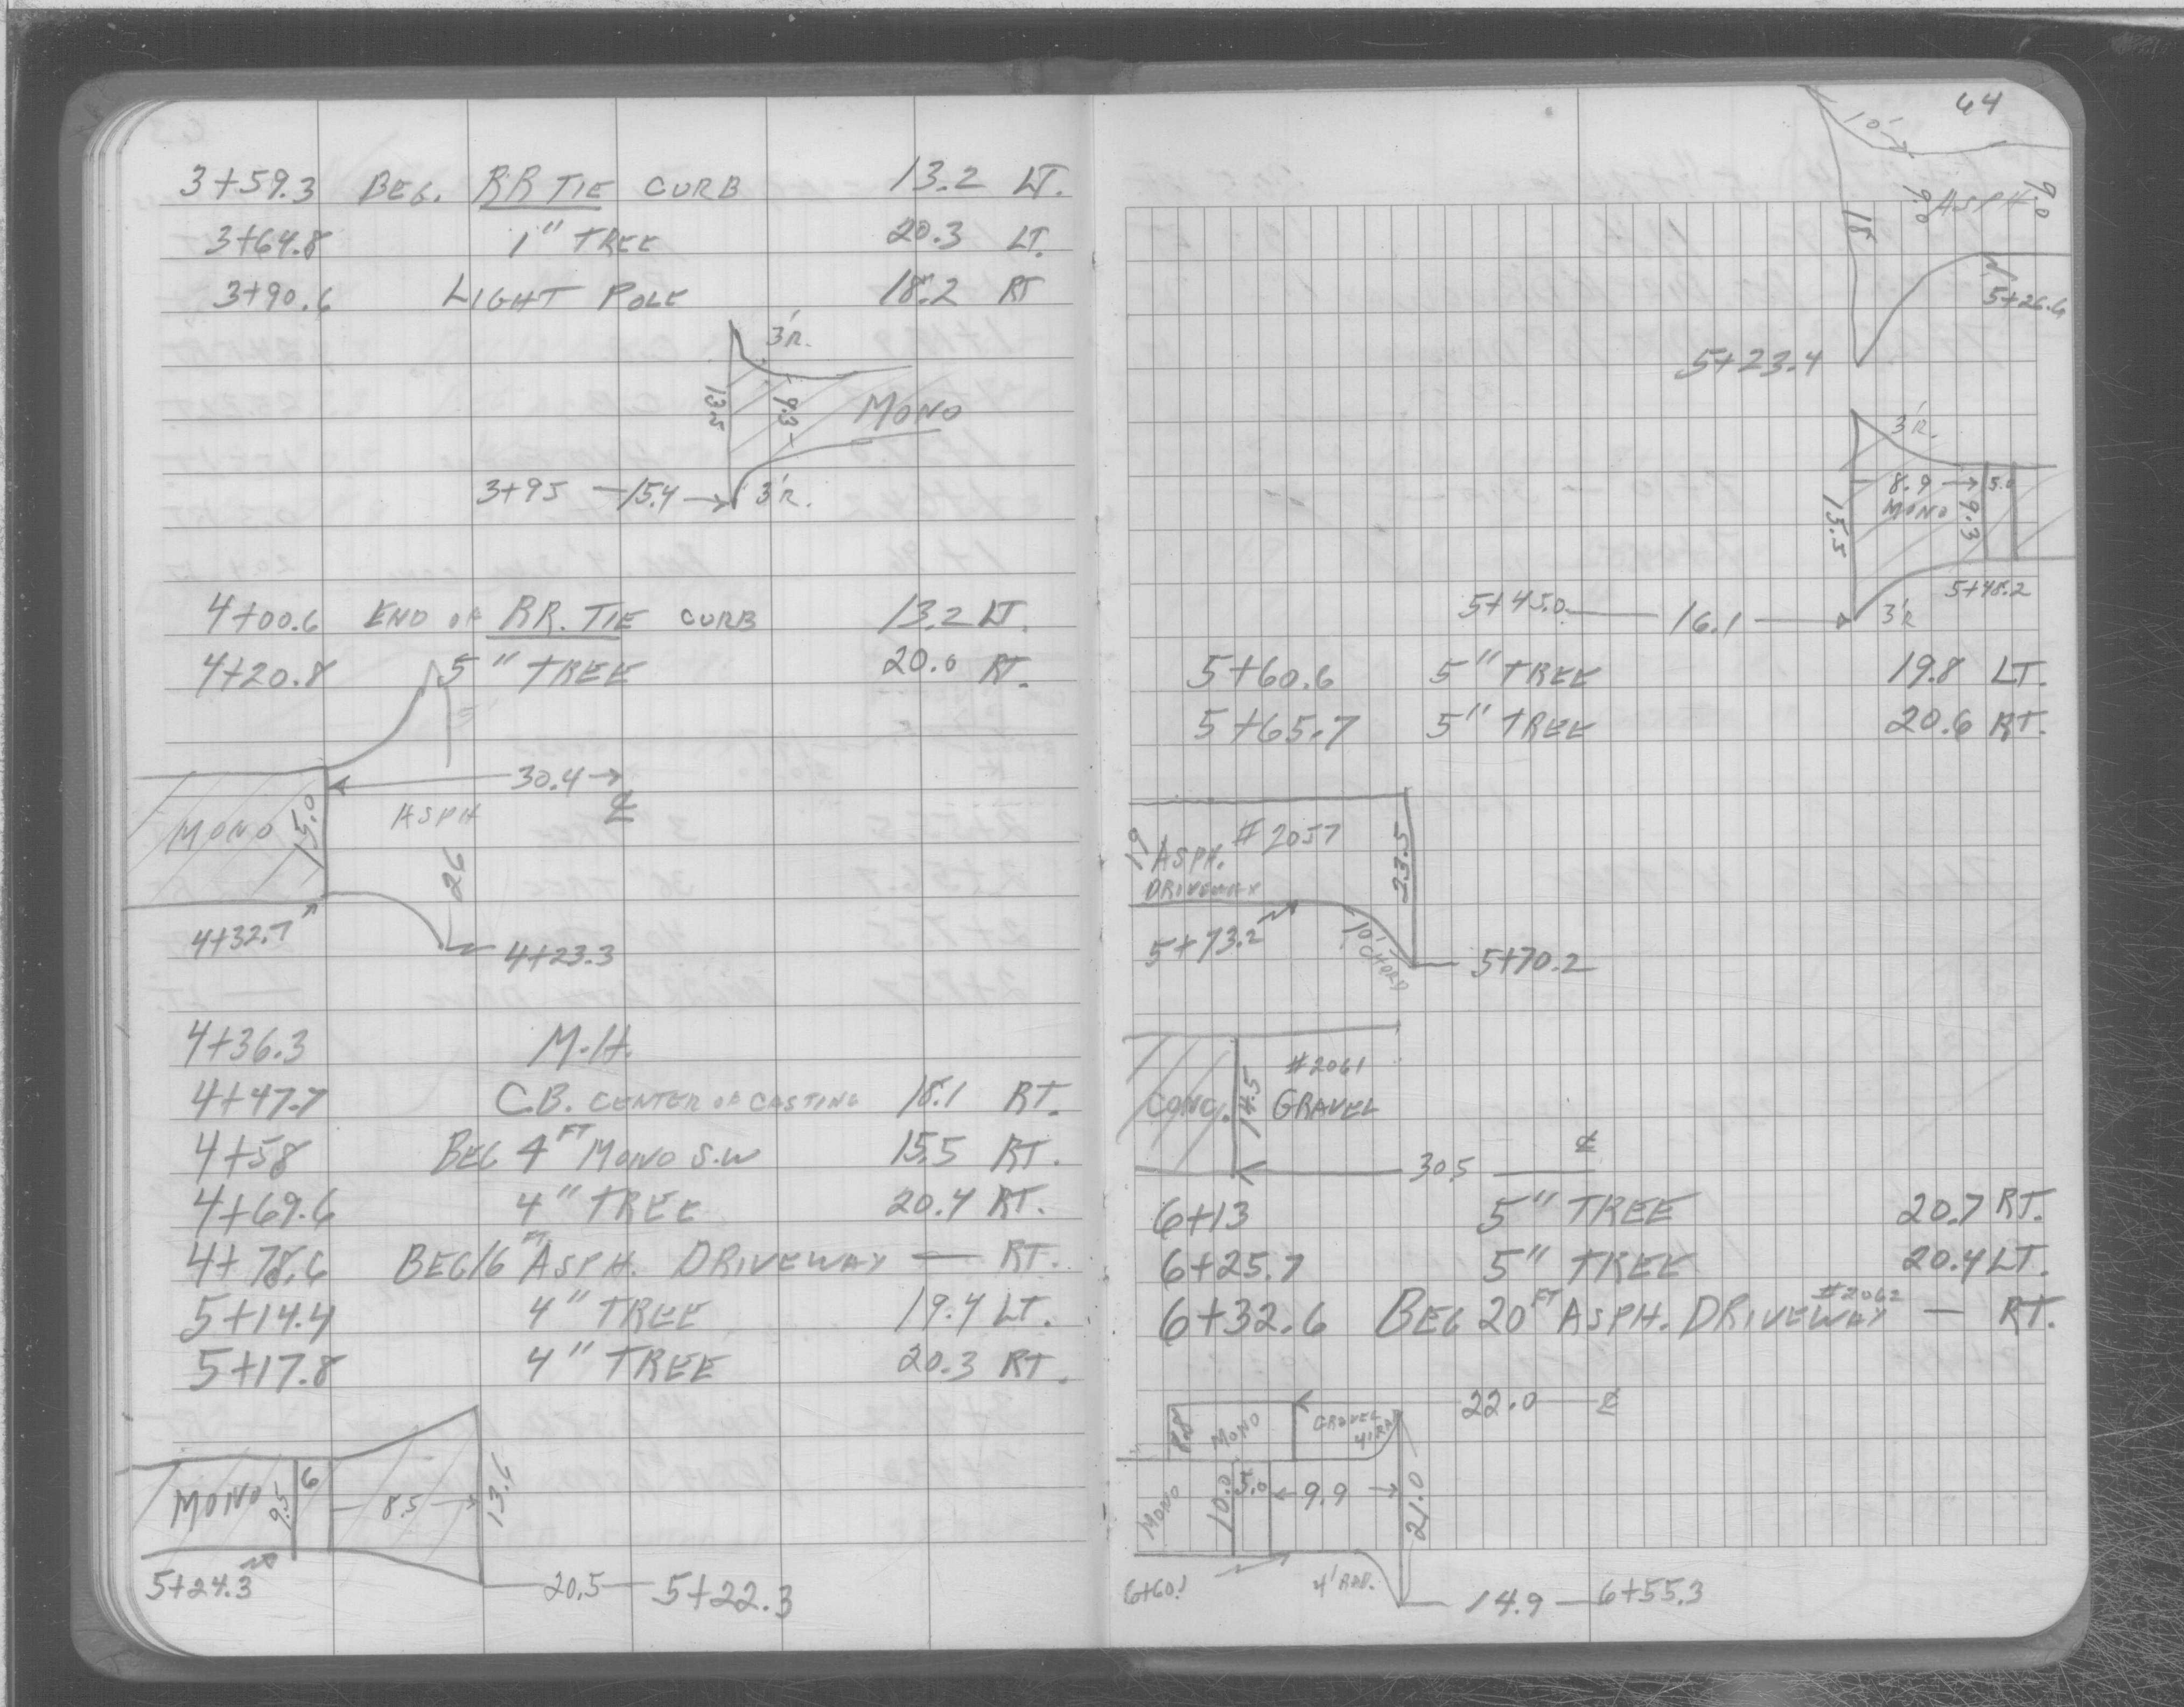 3+59.3 BEG. RR TIE CURB 13.2 LT.
3+64.8 1" TREE 20.3 LT.
3+90.6 LIGHT POLE 18.2 RT
3'R.
13.5
9.3
MONO
3+95 15.4 3'R.
4+00.6 END OF RR. TIE CURB 13.2 LT.
4+20.8 5" TREE 20.0 RT.
30.4
℄
MONO 15.0 ASPH
26
4+32.7
4+23.3
4+36.3 M.H.
4+47.7 C.B. CENTER OF CASTING 18.1 RT.
4+58 BEG 4FT MONO S.W 15.5 RT.
4+69.6 4" TREE 20.4 RT.
4+78.6 BEG 16FT ASPH. DRIVEWAY — RT.
5+14.4 4" TREE 19.4 LT.
5+17.8 4" TREE 20.3 RT.
MONO 9.5 6 8.5 13.6
5+24.3
20.5 5+22.3
64
10'
18
9.0 ASPH 9.0
5+26.6
5+23.4
3'R.
8.9 5.0
MONO
15.5
9.3
5+48.2
5+45.0 16.1 3'R
5+60.6 5" TREE 19.8 LT.
5+65.7 5" TREE 20.6 RT.
19 ASPH. #2057
DRIVEWAY
23.5
5+73.2
10' CHORD
5+70.2
#2061
CONC. 14.5 GRAVEL
℄
30.5
6+13 5" TREE 20.7 RT.
6+25.7 5" TREE 20.4 LT.
#2062
6+32.6 BEG 20FT ASPH. DRIVEWAY — RT.
22.0 ℄
MONO GRAVEL
4'RAD
MONO 10.0 5.0 9.9 21.0
6+60.1
4'RAD.
14.9 6+55.3